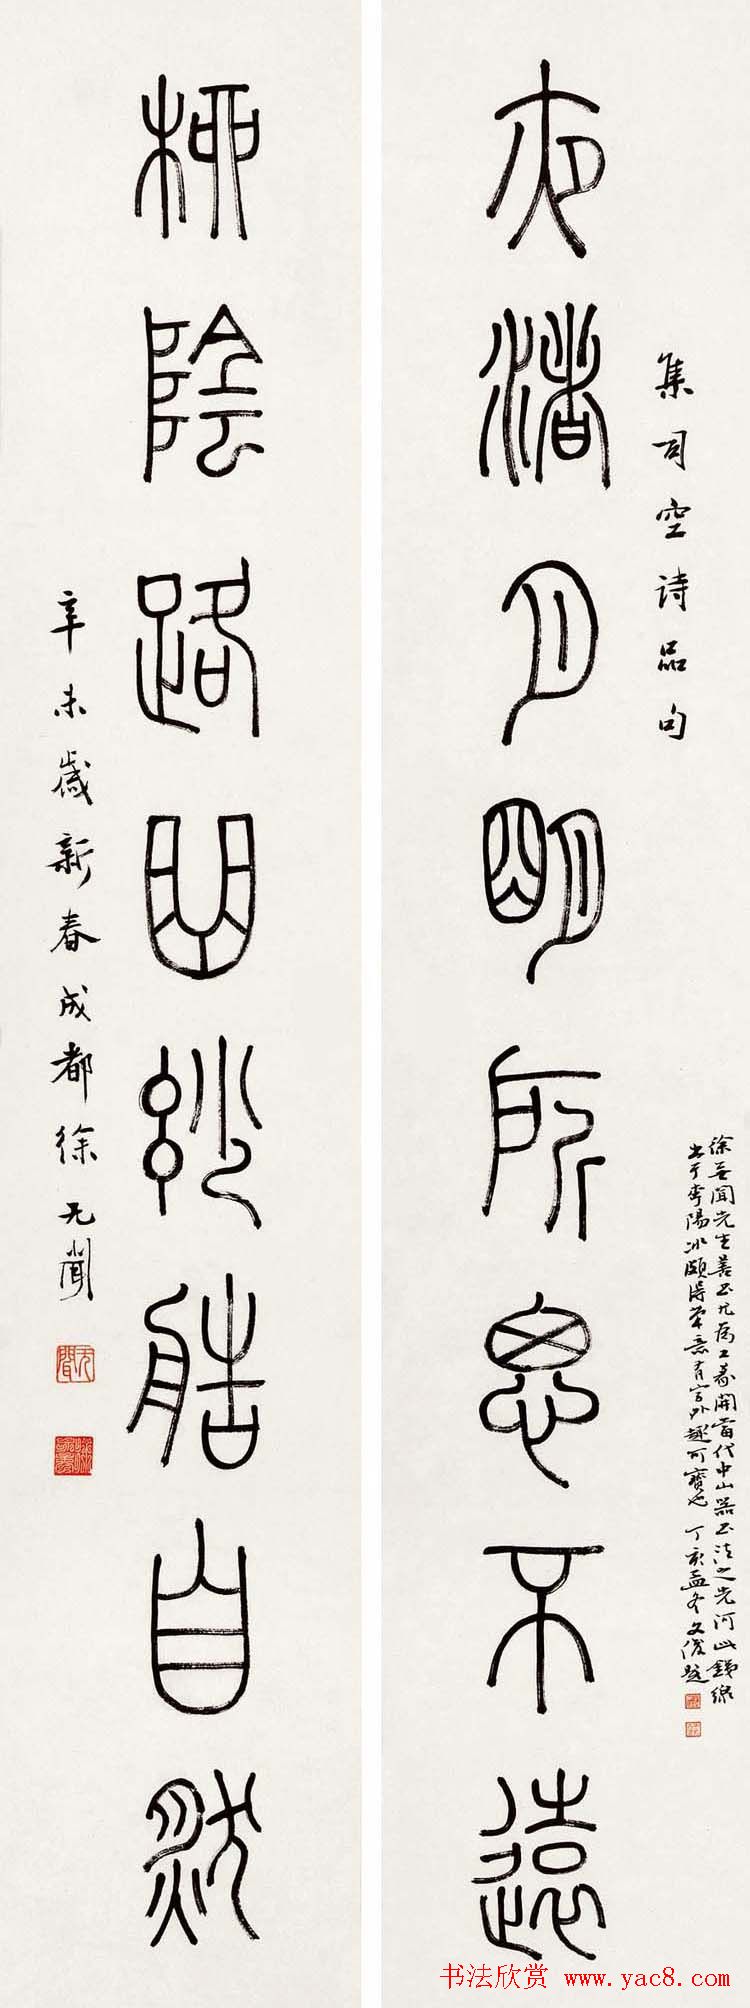 集司空诗品句
夜渚月明所思不遠
徐無聞先生善书尤为工篆開當代中山器书法之先河此鐵線
出于李陽冰頗得筆意有言外趣可寶也 丁亥孟冬文俊題
柳陰路曲玅造自然
辛未歲新春成都徐无聞
无聞
书法欣赏 www.yac8.com